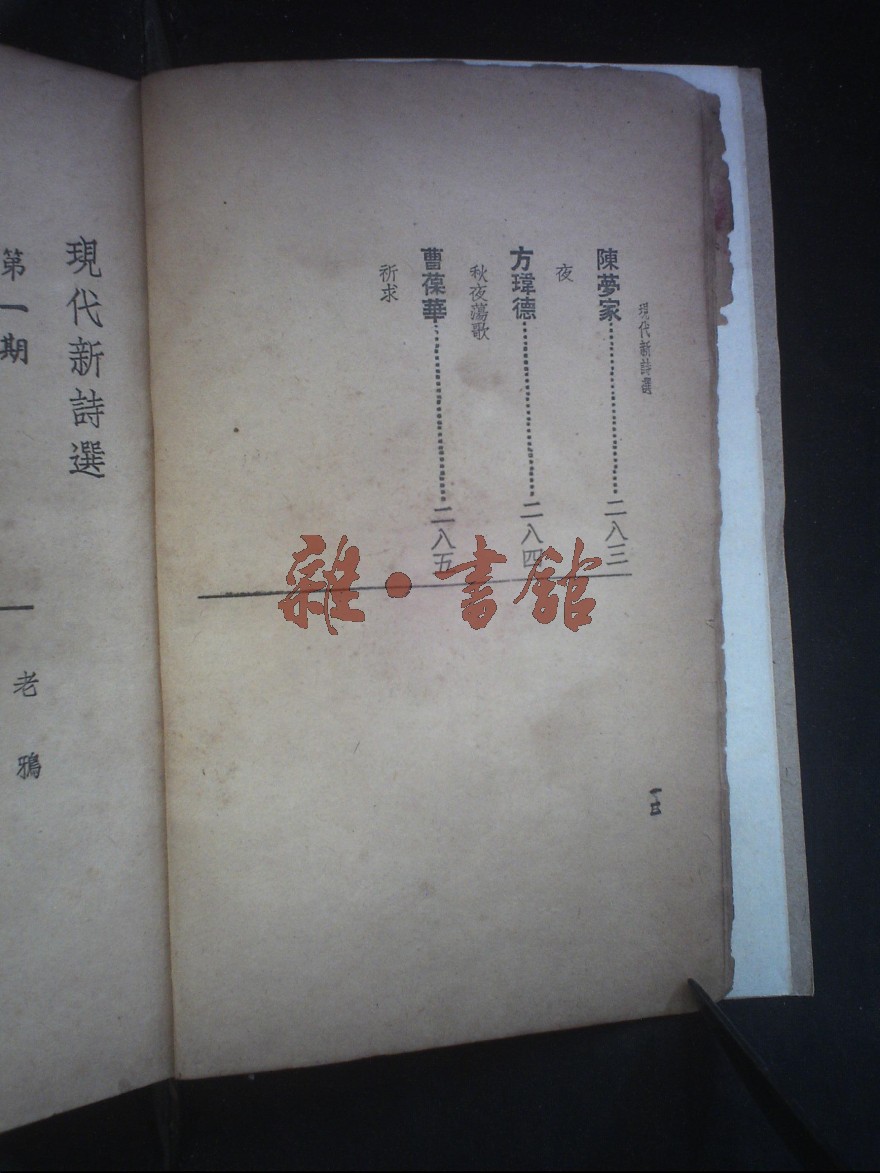 現代新詩選
陳夢家……二八三
夜
方瑋德……二八四
秋夜蕩歌
曹葆華……二八五
祈求
現代新詩選
第一期
老鴉
雜·書館